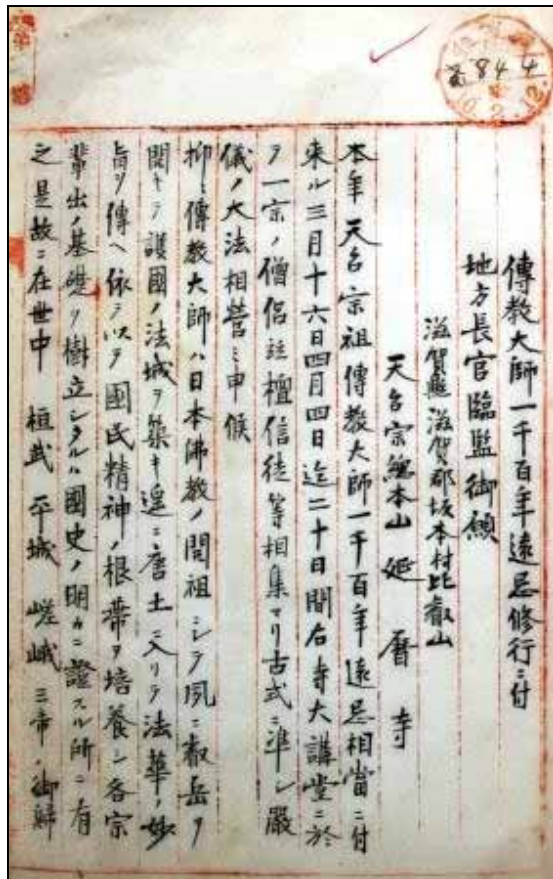 傳教大師一千百年遠忌修行ニ付
地方長官臨監御願
滋賀縣滋賀郡坂本村比叡山
天台宗總本山延暦寺
本年天台宗祖傳教大師一千百年遠忌相當ニ付
来ル三月十六日四月四日迄二十日間右寺大講堂ニ於
テ一宗ノ僧侶並檀信徒等相集マリ古式ニ準シ嚴
儀ノ大法相營ミ申候
抑ゝ傳教大師ハ日本佛教ノ開祖ニシテ夙ニ叡岳ヲ
開キテ護國ノ法城ヲ築キ遠ニ唐土ニ入リテ法華ノ妙
旨ヲ傳ヘ依テ以テ國民精神ノ根蔕ヲ培養シ各宗
輩出ノ基礎ヲ樹立シタルハ國史ノ明カニ證スル所ニ有
之是故ニ在世中桓武平城嵯峨三帝ノ御歸